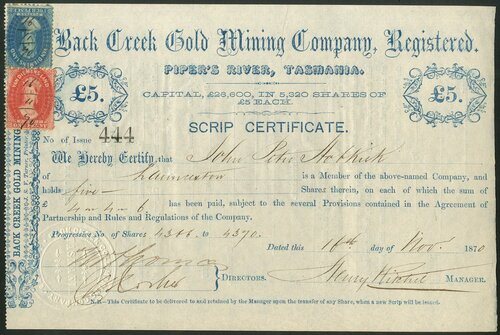 Back Creek Gold Mining Company, Registered.
PIPER'S RIVER, TASMANIA.
£5.
CAPITAL, £26,600, IN 5,320 SHARES OF
£5 EACH.
£5.
SCRIP CERTIFICATE.
No. of Issue 444
We Hereby Certify, that John
of Launceston is a Member of the above-named Company, and
holds five Shares therein, on each of which the sum of
£ has been paid, subject to the several Provisions contained in the Agreement of
Partnership and Rules and Regulations of the Company.
Progressive No. of Shares 4366 to 4370.
Dated this 16th day of Nov. 1870
DIRECTORS.
Henry MANAGER.
N.B. This Certificate to be delivered to and retained by the Manager upon the transfer of any Share, when a new Scrip will be issued.
BACK CREEK GOLD MINING